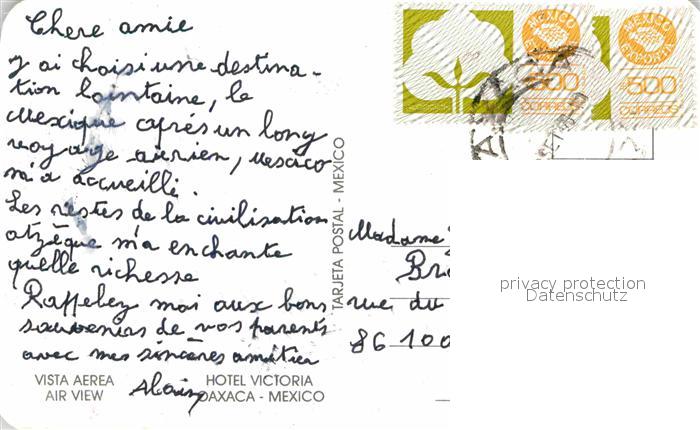 Chere amie
J ai choisi une destina-
tion lointaine, le
Mexique après un long
voyage aerien, Mexico
m'a accueilli.
Les restes de la civilisation
atzèque m'a enchante
quelle richesse
Rappelez moi aux bons
souvenirs de vos parents
avec mes sincères amitiés
Alain
VISTA AEREA
AIR VIEW
HOTEL VICTORIA
OAXACA - MEXICO
TARJETA POSTAL - MEXICO
MEXICO
EXPORTA
500
CORREOS
MEXICO
EXPORTA
500
CORREOS
Madame
rue du
86 100
privacy protection
Datenschutz